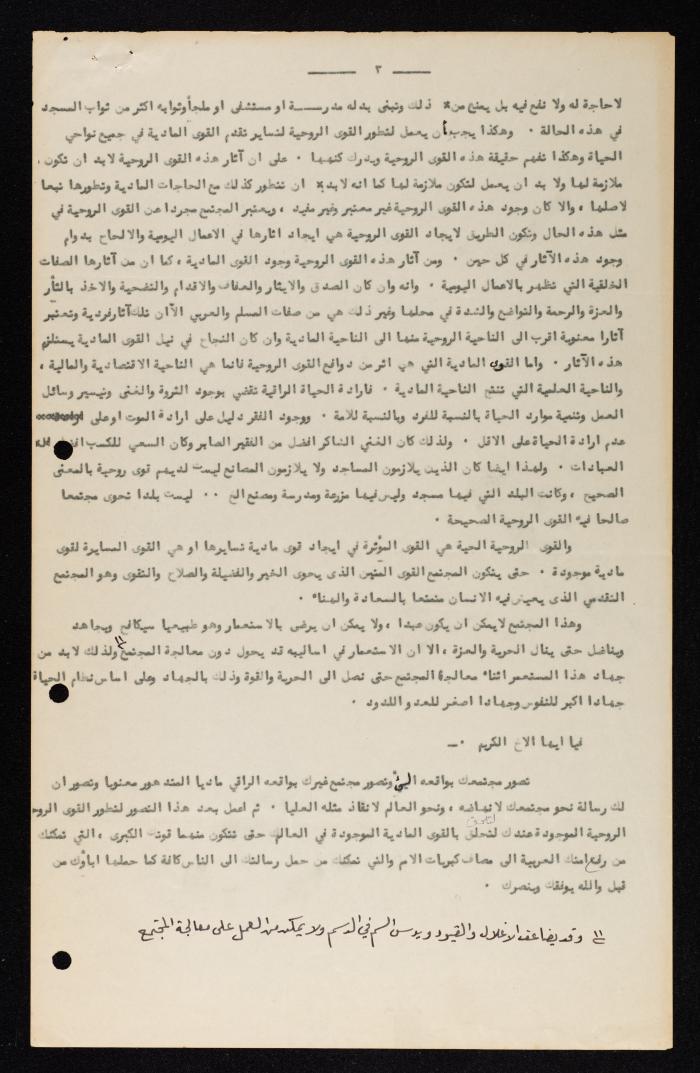 — ٣ —
لا حاجة له ولا نفع فيه بل يمنع من ذلك وتبنى بدله مدرسة او مستشفى او ملجأ وثوابه اكثر من ثواب المسجد
في هذه الحالة . وهكذا يجب أن يعمل لتطور القوى الروحية لتساير تقدم القوى المادية في جميع نواحي
الحياة وهكذا تفهم حقيقة هذه القوى الروحية ويدرك كنهها . على ان آثار هذه القوى الروحية لابد ان تكون
ملازمة لها ولا بد ان يعمل لتكون ملازمة لها كما انه لابد ان تتطور كذلك مع الحاجات المادية وتطورها تبعا
لاصلها ، والا كان وجود هذه القوى الروحية غير معتبر وغير مفيد ، ويعتبر المجتمع مجردا عن القوى الروحية في
مثل هذه الحال وتكون الطريق لايجاد القوى الروحية هي ايجاد اثارها في الاعمال اليومية والالحاح بدوام
وجود هذه الآثار في كل حين . ومن آثار هذه القوى الروحية وجود القوى المادية ، كما ان من آثارها الصفات
الخلقية التي تظهر بالاعمال اليومية . وانه وان كان الصدق والايثار والعفاف والاقدام والتضحية والاخذ بالثأر
والعزة والرحمة والتواضع والشدة في محلها وغير ذلك هي من صفات المسلم والعربي الا ان تلك آثار فردية وتعتبر
آثارا معنوية اقرب الى الناحية الروحية منها الى الناحية المادية وان كان النجاح في نيل القوى المادية يستلزم
هذه الآثار . واما القوى المادية التي هي اثر من دوافع القوى الروحية فانما هي الناحية الاقتصادية والمالية ،
والناحية العلمية التي تنتج الناحية المادية . فارادة الحياة الراقية تقضي بوجود الثروة والغنى وتيسير وسائل
العمل وتنمية موارد الحياة بالنسبة للفرد وبالنسبة للامة . ووجود الفقر دليل على ارادة الموت او على
عدم ارادة الحياة على الاقل . ولذلك كان الغني الشاكر افضل من الفقير الصابر وكان السعي للكسب افضل
العبادات . ولهذا ايضا كان الذين يلازمون المساجد ولا يلازمون المصانع ليست لديهم قوى روحية بالمعنى
الصحيح ، وكانت البلد التي فيها مسجد وليس فيها مزرعة ومدرسة ومصنع الخ .. ليست بلدا تحوى مجتمعا
صالحا فيه القوى الروحية الصحيحة .
والقوى الروحية الحية هي القوى المؤثرة في ايجاد قوى مادية تسايرها او هي القوى المسايرة لقوى
مادية موجودة . حتى يتكون المجتمع القوى المتين الذى يحوى الخير والفضيلة والصلاح والتقوى وهو المجتمع
التقدمي الذى يعيش فيه الانسان متمتعا بالسعادة والهناء .
وهذا المجتمع لا يمكن ان يكون عبدا ، ولا يمكن ان يرضى بالاستعمار وهو طبيعيا سيكافح ويجاهد
ويناضل حتى ينال الحرية والعزة ، الا ان الاستعمار في اساليبه قد يحول دون معالجة المجتمع //١ ولذلك لابد من
جهاد هذا المستعمر اثناء معالجة المجتمع حتى نصل الى الحرية والقوة وذلك بالجهاد وعلى اساس نظام الحياة
جهادا اكبر للنفوس وجهادا اصغر للعدو اللدود .
فيا ايها الاخ الكريم .ــ
تصور مجتمعك بواقعه السيئ وتصور مجتمع غيرك بواقعه الراقي ماديا المتدهور معنويا وتصور ان
لك رسالة نحو مجتمعك لانهاضه ، ونحو العالم لانقاذ مثله العليا . ثم اعمل بعد هذا التصور لتطور القوى الرو
الروحية الموجودة عندك لتلحق بالقوى المادية الموجودة في العالم حتى تتكون منهما قوتك الكبرى ، التي تمكنك
من رفع امتك العربية الى مصاف كبريات الامم والتي تمكنك من حمل رسالتك الى الناس كافة كما حملها اباؤك من
قبل والله يوفقك وينصرك .
//١ وقد يضاعف الاغلال والقيود ويدس السم في الدسم ولا يمكنه من العمل على معالجة المجتمع